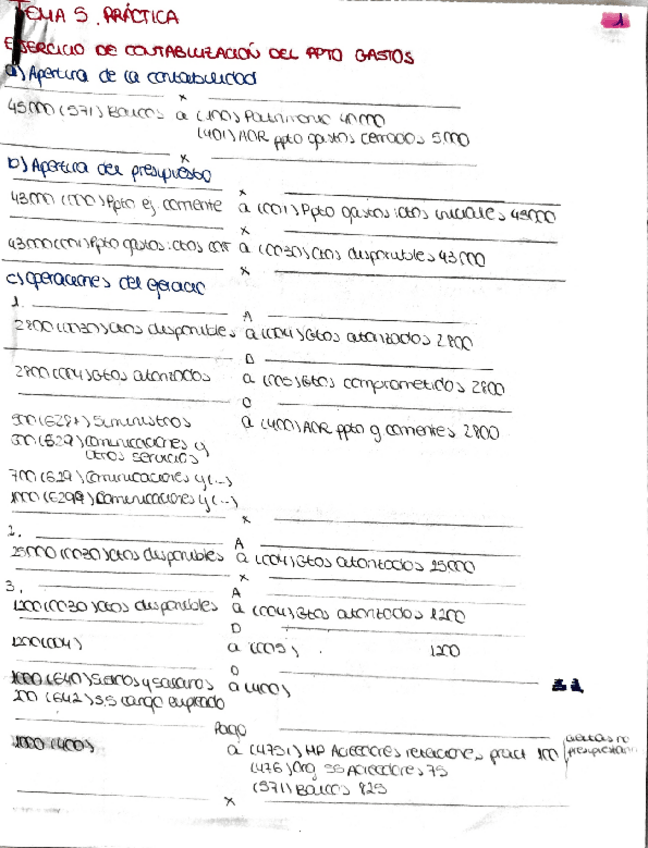 TEMA 5. PRÁCTICA
1
EJERCICIO DE CONTABILIZACIÓN DEL PPTO GASTOS
a) Apertura de la contabilidad
x
45000 (571) Bancos a (100) Patrimonio 40000
(401) AOR ppto gastos cerrados 5000
x
b) Apertura del presupuesto
x
43000 (000) Ppto ej corriente a (001) Ppto gastos: ctos iniciales 43000
x
43000 (001) Ppto gastos: ctos a (0030) ctos disponibles 43000
x
c) Operaciones del ejercicio
1.
A
2800 (0030) ctos disponibles a (004) Gtos autorizados 2800
D
2800 (004) Gtos autorizados a (005) Gtos comprometidos 2800
O
(628) Suministros a (400) AOR ppto g corrientes 2800
(629) Comunicaciones y
otros servicios
700 (629) Comunicaciones y (...)
1000 (6299) Comunicaciones y (...)
x
2.
A
25000 (0030) ctos disponibles a (004) Gtos autorizados 25000
x
3.
A
1200 (0030) ctos disponibles a (004) Gtos autorizados 1200
D
1200 (004) a (005) 1200
O
1000 (640) Sueldos y salarios a (400)
200 (642) SS cargo empresa
Pago
1000 (400) a (4751) HP Acreedores retenciones pract 100
(476) Org SS Acreedores 75
(571) Bancos 825
x